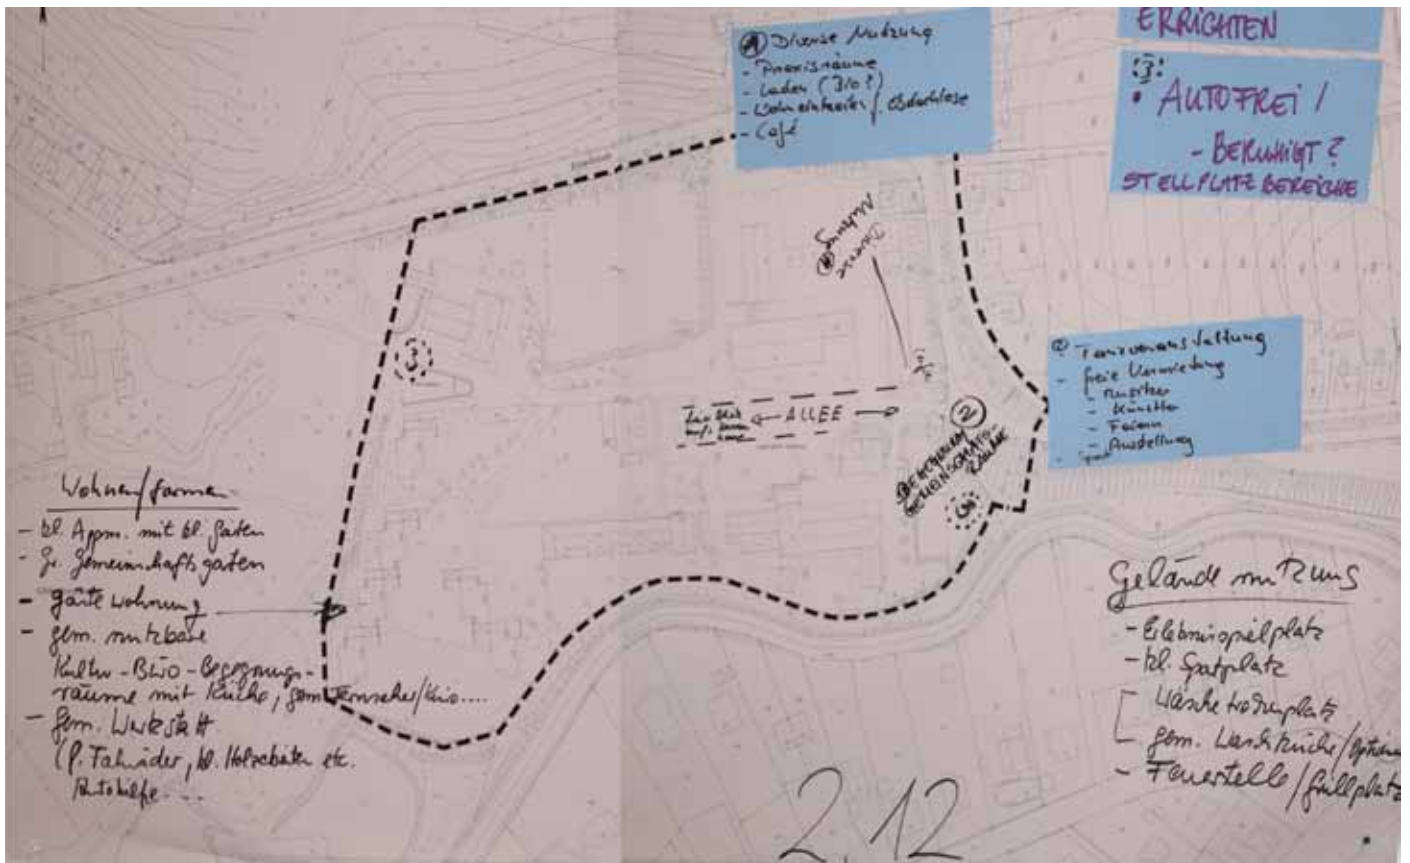 ① Diverse Nutzung
- Praxisräume
- Laden (Bio?)
- Wohneinheiten / Obdachlose
- Café
ERRICHTEN
3
• AUTOFREI /
- BERUHIGT?
STELLPLATZBEREICHE
Diverse
Nutzung
3
② - Tanzveranstaltung
- freie Vermietung
- Musiker
- Künstler
- Feiern
- Ausstellung
- Sport
← ALLEE →
②
BEGEGNUNG
GEMEINSCHAFTS-
RÄUME
3
Wohnen/farmen
- kl. Appm. mit kl. Garten
- Gr. Gemeinschaftsgarten
- Gästewohnung
- gem. nutzbare
Kultur-Büro-Begegnungs-
räume mit Küche, gem. Fernseher/Kino....
- gem. Werkstatt
(f. Fahrräder, kl. Holzarbeiten etc.
Autohilfe....
Geländenutzung
- Erlebnisspielplatz
- kl. Sportplatz
Wäschetrockenplatz
- gem. Waschküche/
- Feuerstelle/Grillplatz
2.12